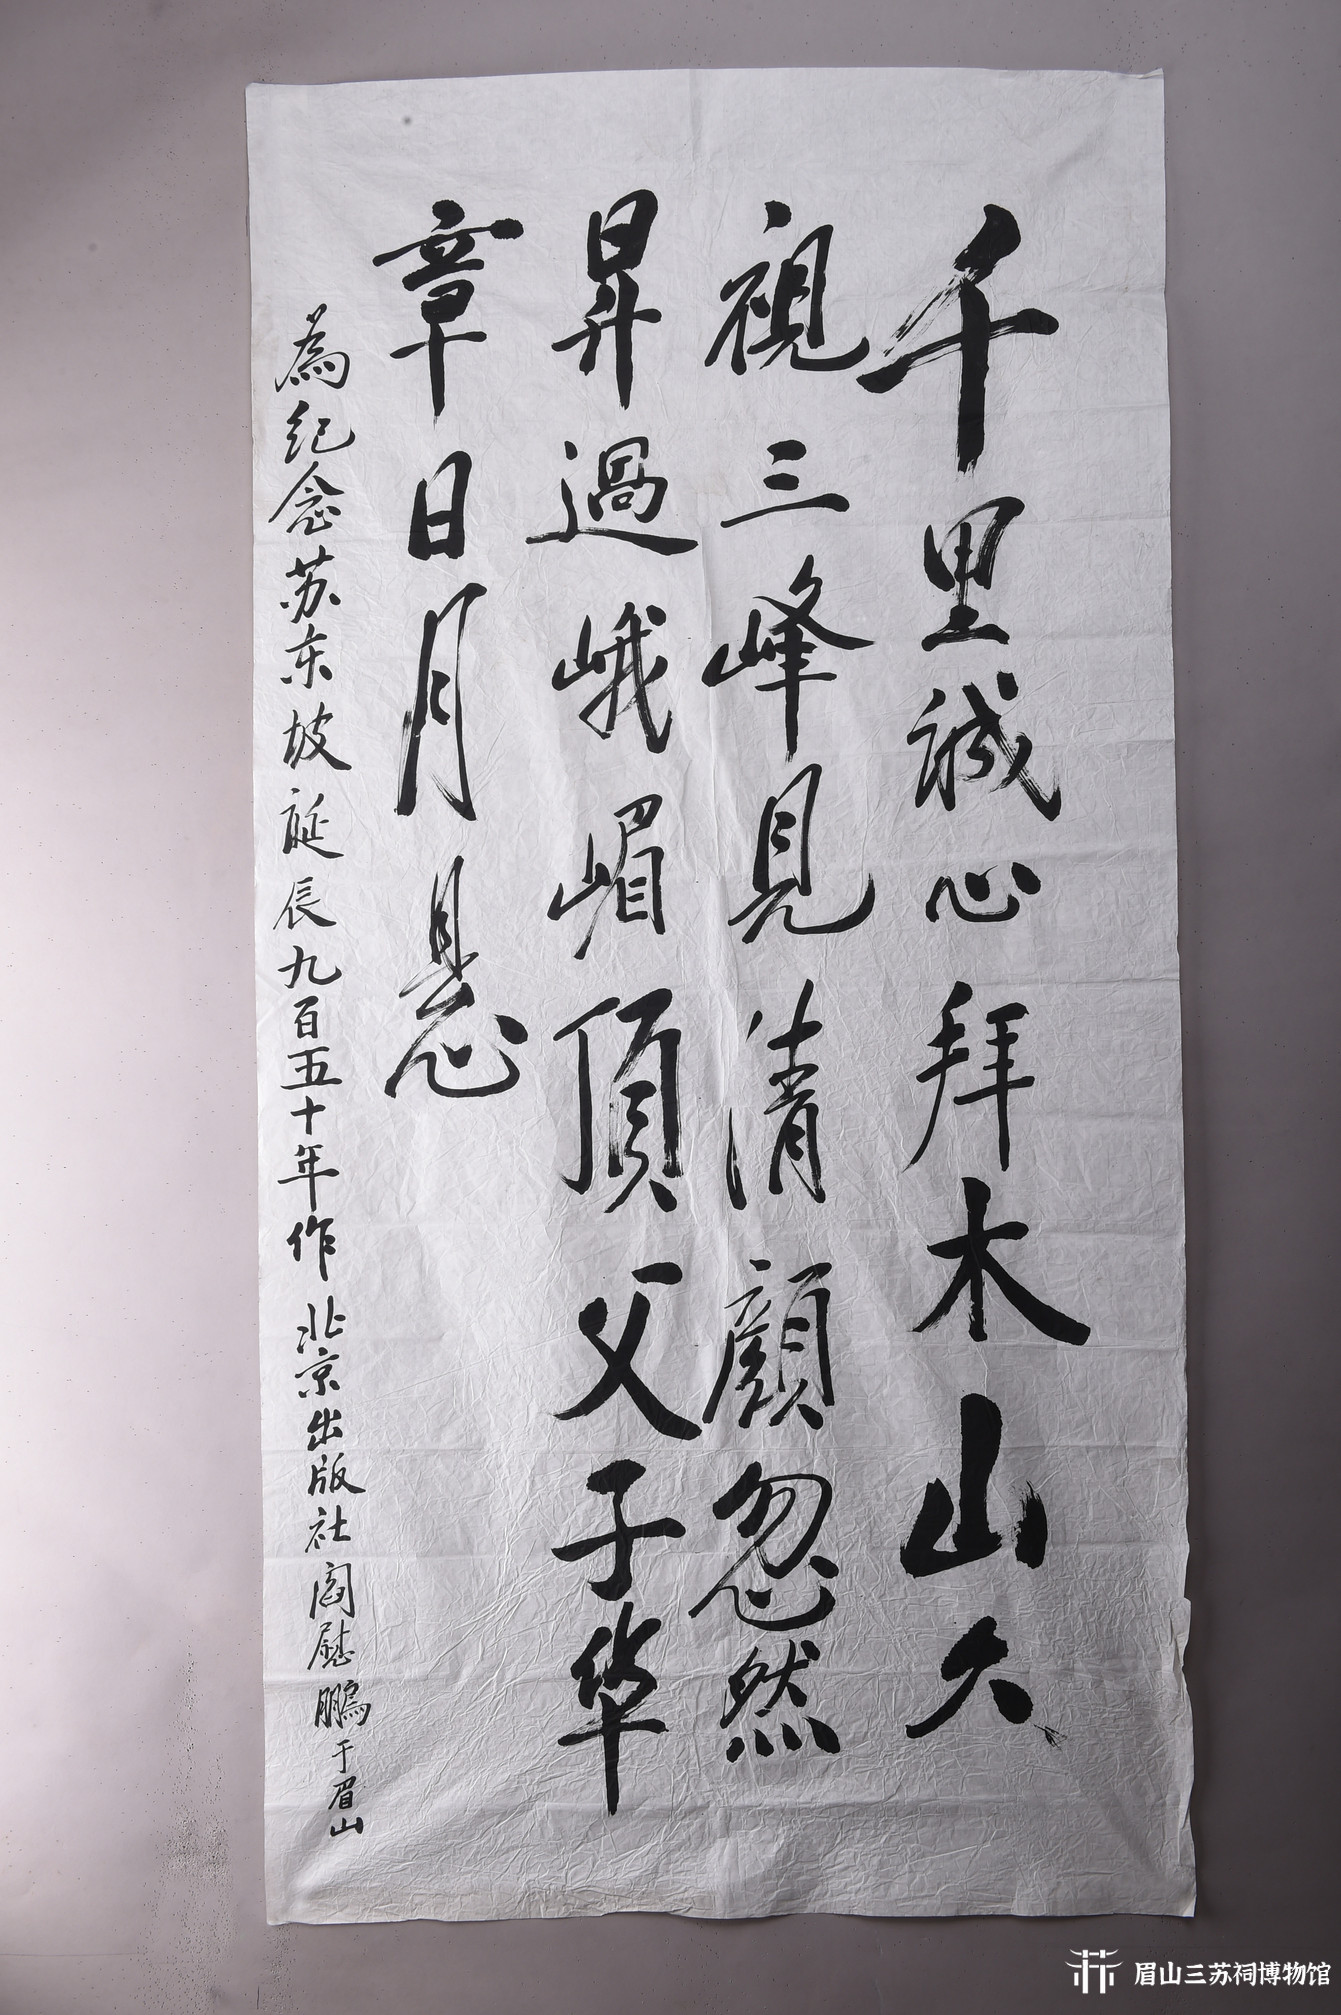 千里诚心拜木山久
視三峰見清顔忽然
昇過峨嵋頂父子华
章日月悬
為纪念苏东坡诞辰九百五十年作北京出版社阎慰鹏于眉山
眉山三苏祠博物馆